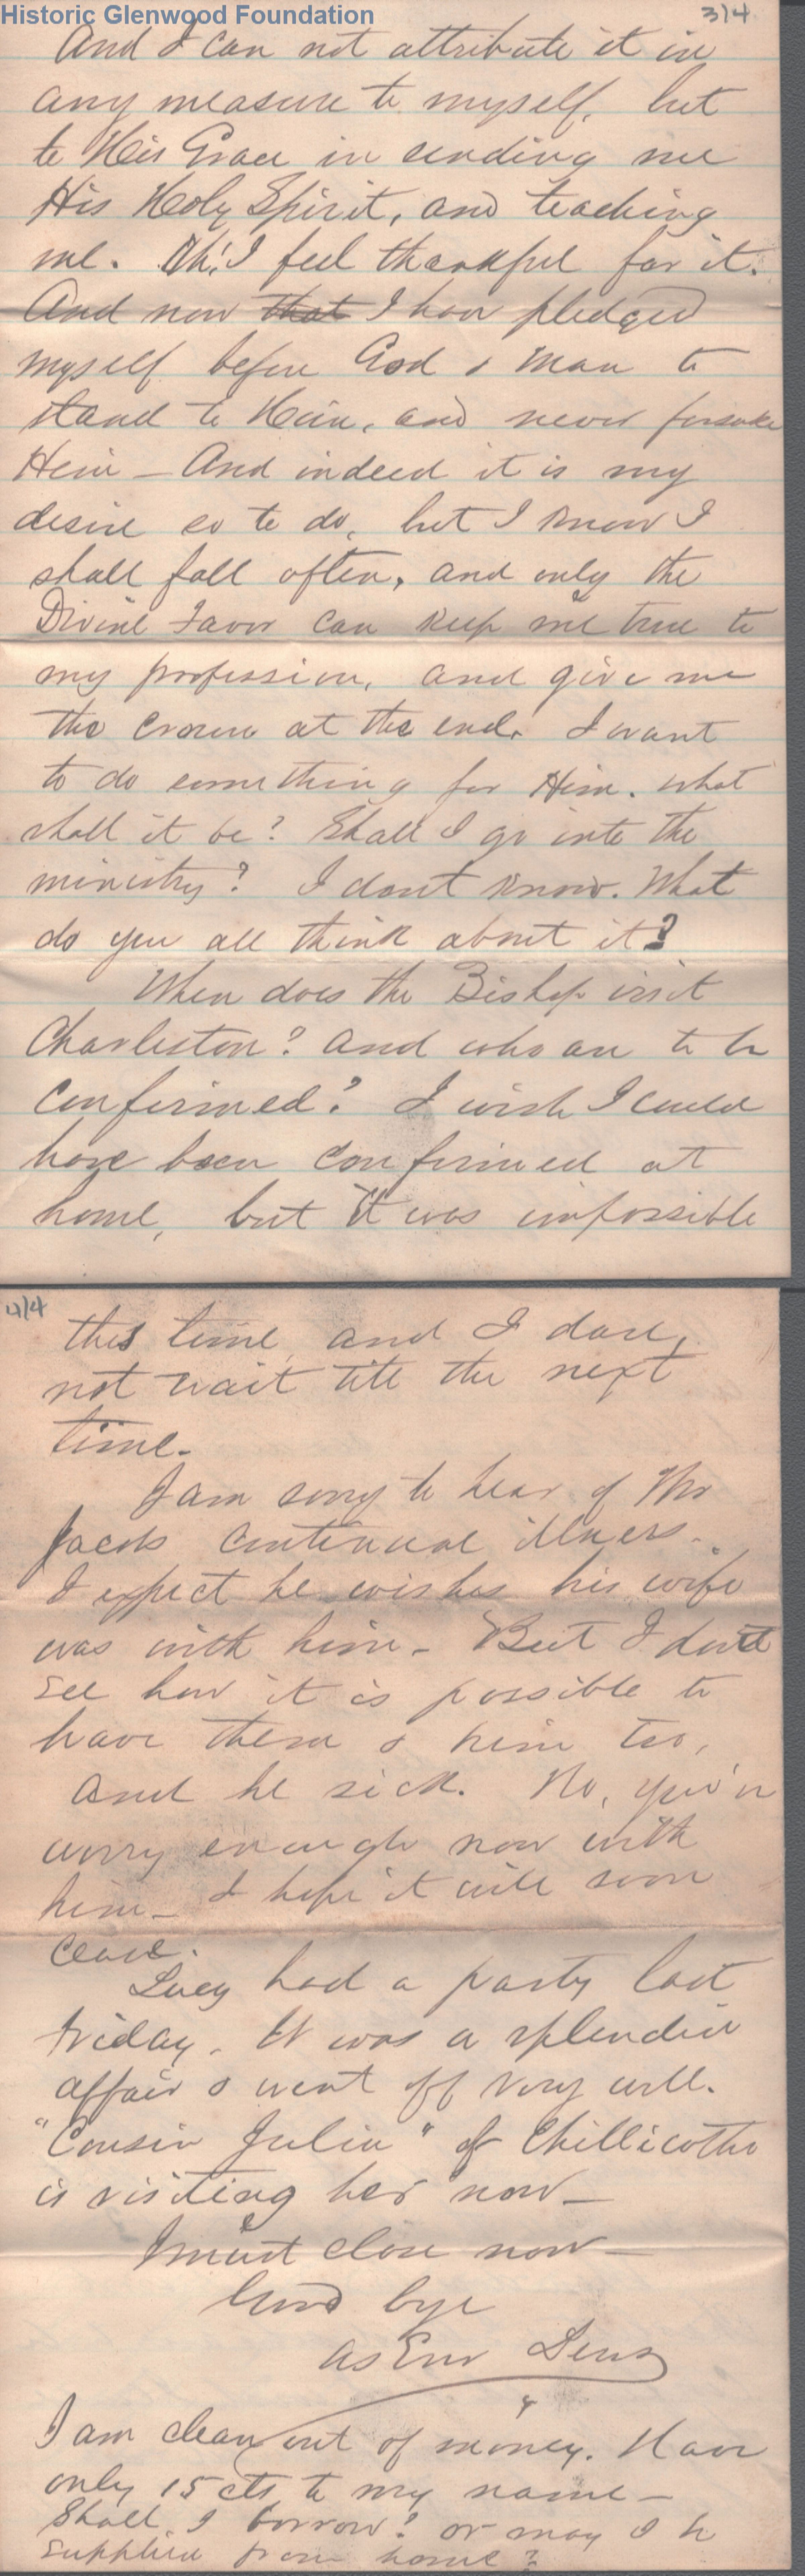 Historic Glenwood Foundation
3/4
And I can not attribute it in
any measure to myself, but
to His Grace in sending me
His Holy Spirit, and teaching
me. Oh! I feel thankful for it.
And now that I have pledged
myself before God & man to
stand to Him, and never forsake
Him – And indeed it is my
desire so to do, but I know I
shall fall often, and only the
Divine Favor can keep me true to
my profession, and give me
the crown at the end. I want
to do something for Him. What
shall it be? Shall I go into the
ministry? I dont know. What
do you all think about it?
When does the Bishop visit
Charleston? and who are to be
confirmed? I wish I could
have been confirmed at
home, but it was impossible
4/4
this time and I dare
not wait till the next
time.
I am sorry to hear of Mr
Jacobs continual illness.
I expect he wishes his wife
was with him – But I don't
see how it is possible to
have them & him too,
and he sick. No, you've
worry enough now with
him – I hope it will soon
cease.
Lucy had a party last
Friday. It was a splendid
affair & went off very well.
"Cousin Julia" of Chillicothe
is visiting her now –
I must close now –
Good bye
As Ever
I am clean out of money. Have
only 15 cts to my name –
Shall I borrow? or may I be
supplied from home?